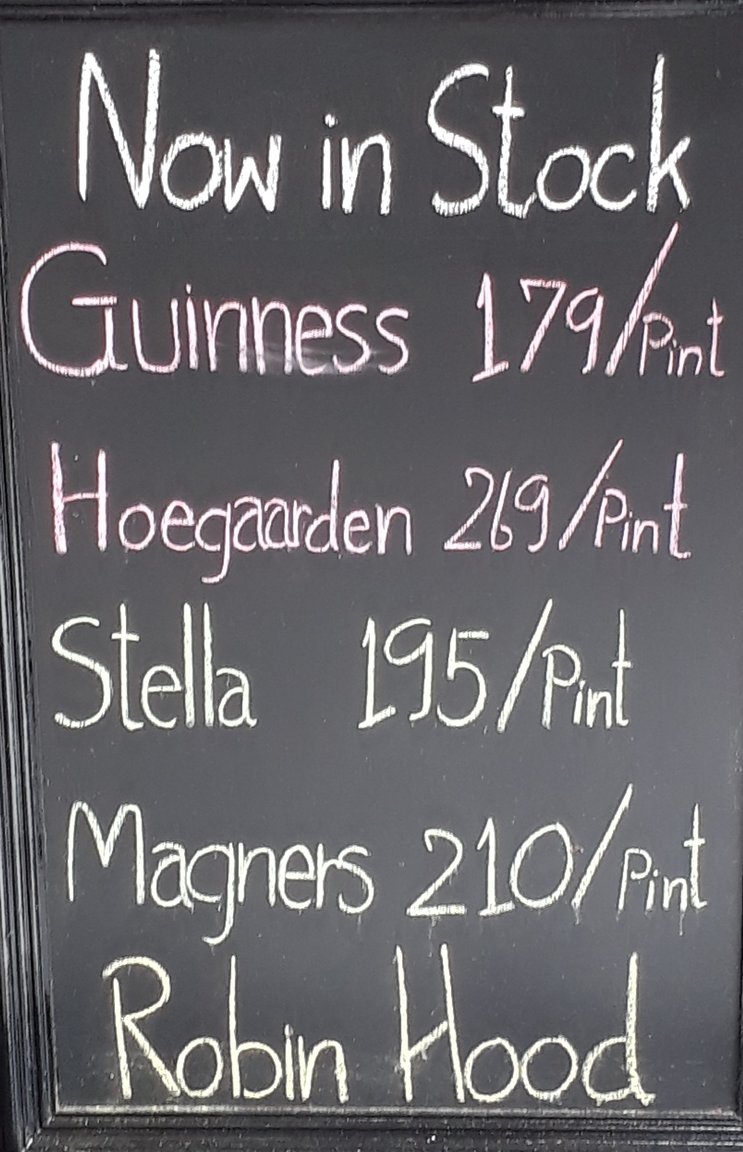 Now in Stock
Guinness 179/Pint
Hoegaarden 269/Pint
Stella 195/Pint
Magners 210/Pint
Robin Hood